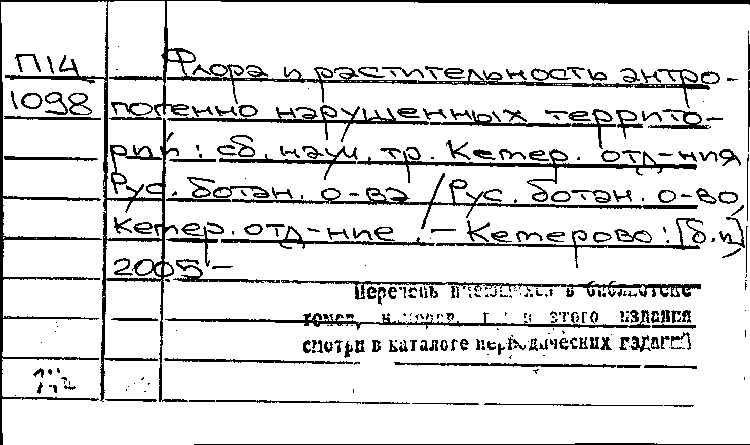 П14
1098
Флора и растительность антро-
погенно нарушенных террито-
рий: сб. науч. тр. Кемер. отд-ния
Рус. ботан. о-ва / Рус. ботан. о-во,
Кемер. отд-ние. - Кемерово: [б.и.],
2005 -
Перечень имеющихся в библиотеке
томов, номеров, г и этого издания
смотри в каталоге периодических изданий